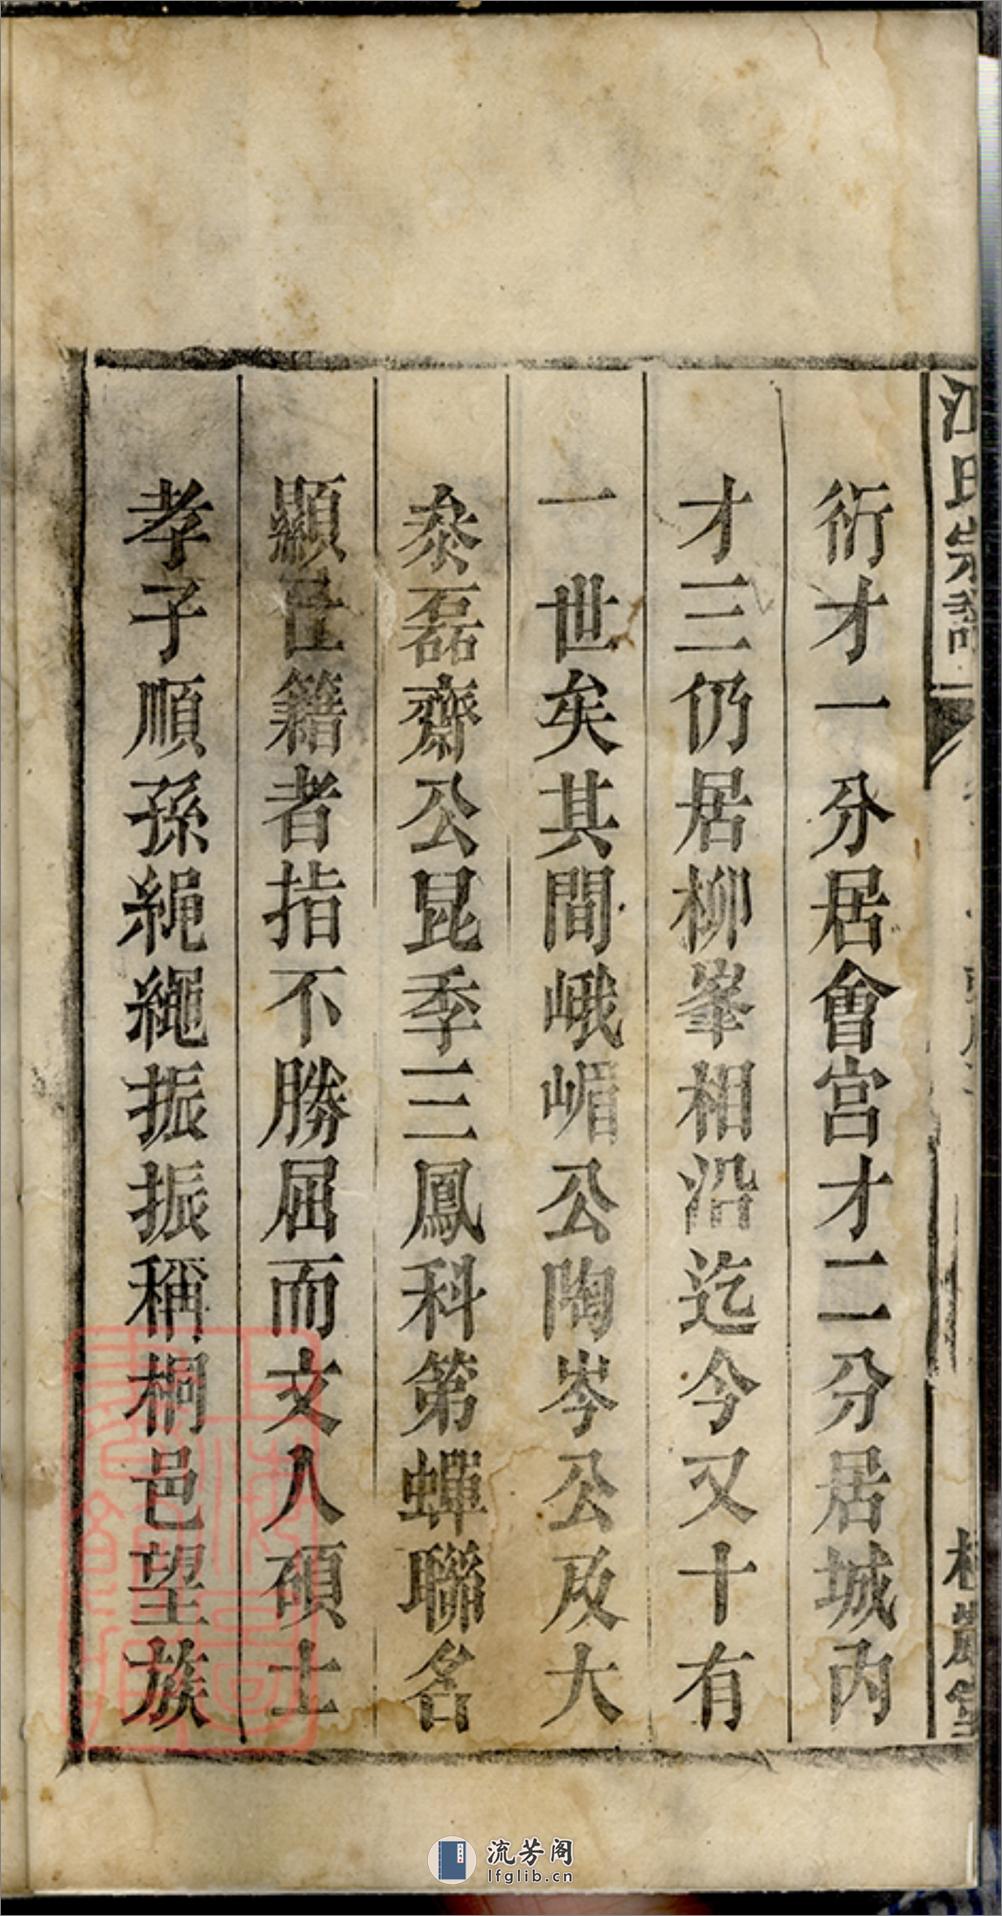 江氏宗譜
衍才一分居會宮才二分居城內
才三仍居柳峯相沿迄今又十有
一世矣其間峨嵋公陶岑公及大
泰磊齋公昆季三鳳科第蟬聯名
顯仕籍者指不勝屈而文人碩士
孝子順孫繩繩振振稱桐邑望族
流芳阁
lfglib.cn